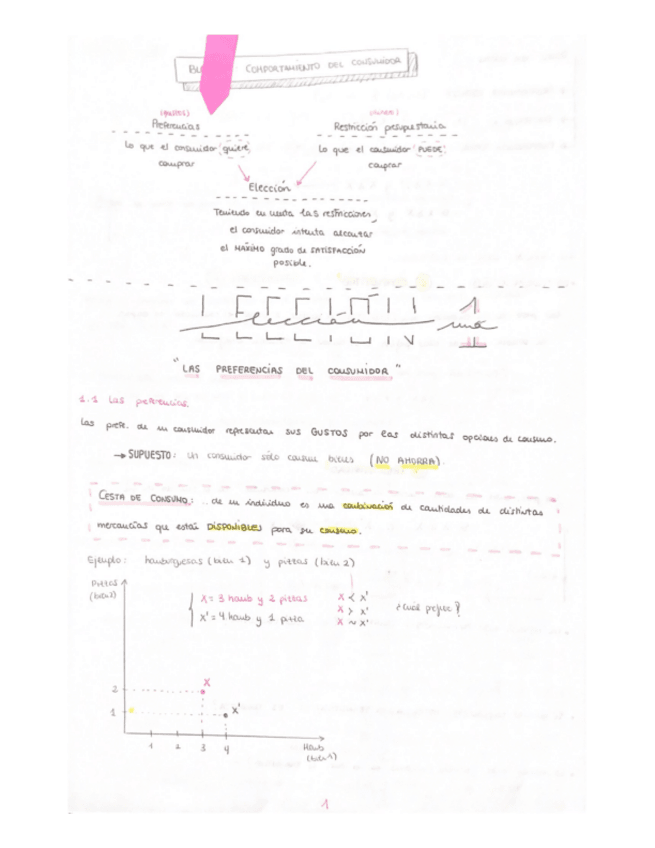 COMPORTAMIENTO DEL CONSUMIDOR
(gustos)
Preferencias
Restricción presupuestaria
Lo que el consumidor quiere
comprar
Lo que el consumidor PUEDE
comprar
Elección
Teniendo en cuenta las restricciones,
el consumidor intenta alcanzar
el MÁXIMO grado de SATISFACCIÓN
posible.
LECCIÓN 1
lección una
"LAS PREFERENCIAS DEL CONSUMIDOR"
1.1 Las preferencias.
Las prefe. de un consumidor representan sus GUSTOS por las distintas opciones de consumo.
→ SUPUESTO: un consumidor sólo consume bienes (NO AHORRA).
CESTA DE CONSUMO: de un individuo es una combinación de cantidades de distintas
mercancías que están DISPONIBLES para su consumo.
Ejemplo: hamburguesas (bien 1) y pizzas (bien 2)
Pizzas
(bien 2)
X = 3 hamb y 2 pizzas
X' = 4 hamb y 1 pizza
X < X'
X > X'
X ~ X'
¿Cuál prefiere?
2
1
X
X'
1 2 3 4
Hamb
(bien 1)
1